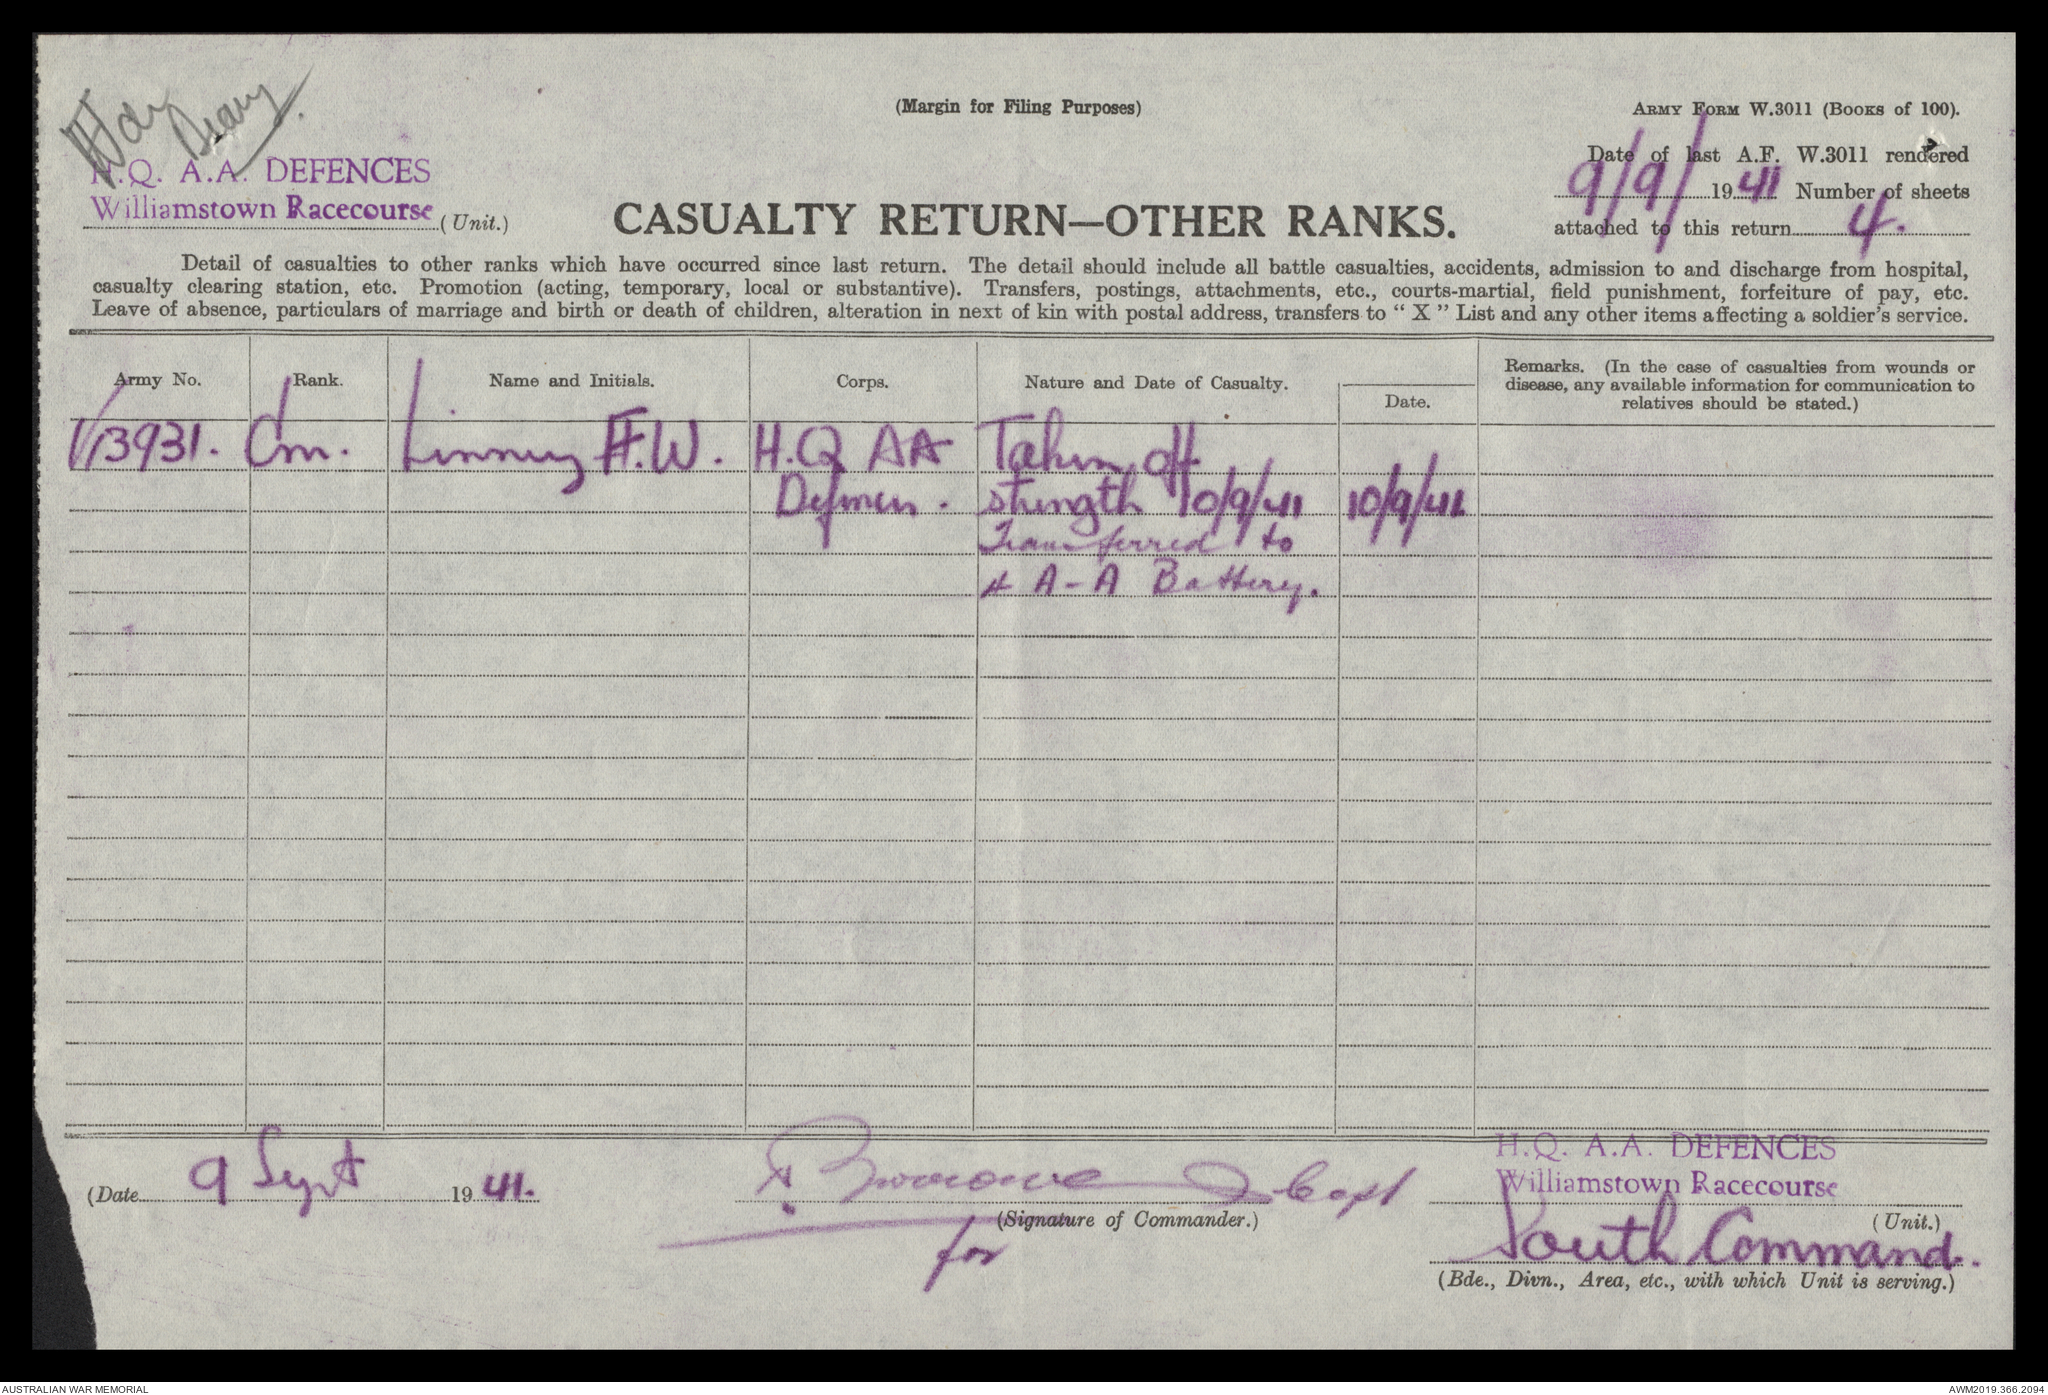 (Margin for Filing Purposes)
ARMY FORM W.3011 (BOOKS of 100).
Diary.
H.Q. A.A. DEFENCES
Williamstown Racecourse (Unit.)
CASUALTY RETURN—OTHER RANKS.
Date of last A.F. W.3011 rendered
9/9/ 19 41 Number of sheets
attached to this return 4.
Detail of casualties to other ranks which have occurred since last return. The detail should include all battle casualties, accidents, admission to and discharge from hospital,
casualty clearing station, etc. Promotion (acting, temporary, local or substantive). Transfers, postings, attachments, etc., courts-martial, field punishment, forfeiture of pay, etc.
Leave of absence, particulars of marriage and birth or death of children, alteration in next of kin with postal address, transfers to "X" List and any other items affecting a soldier's service.
Army No. Rank. Name and Initials. Corps. Nature and Date of Casualty. Date. Remarks. (In the case of casualties from wounds or
disease, any available information for communication to
relatives should be stated.)
V13931. Gnr. Linney F.W. H.Q AA Taken off
Defences. strength 10/9/41 10/9/41
Transferred to
4 A-A Battery.
(Date 9 Sept 19 41.
Capt
(Signature of Commander.)
for
H.Q. A.A. DEFENCES
Williamstown Racecourse
(Unit.)
South Command.
(Bde., Divn., Area, etc., with which Unit is serving.)
AUSTRALIAN WAR MEMORIAL
AWM2019.366.2094